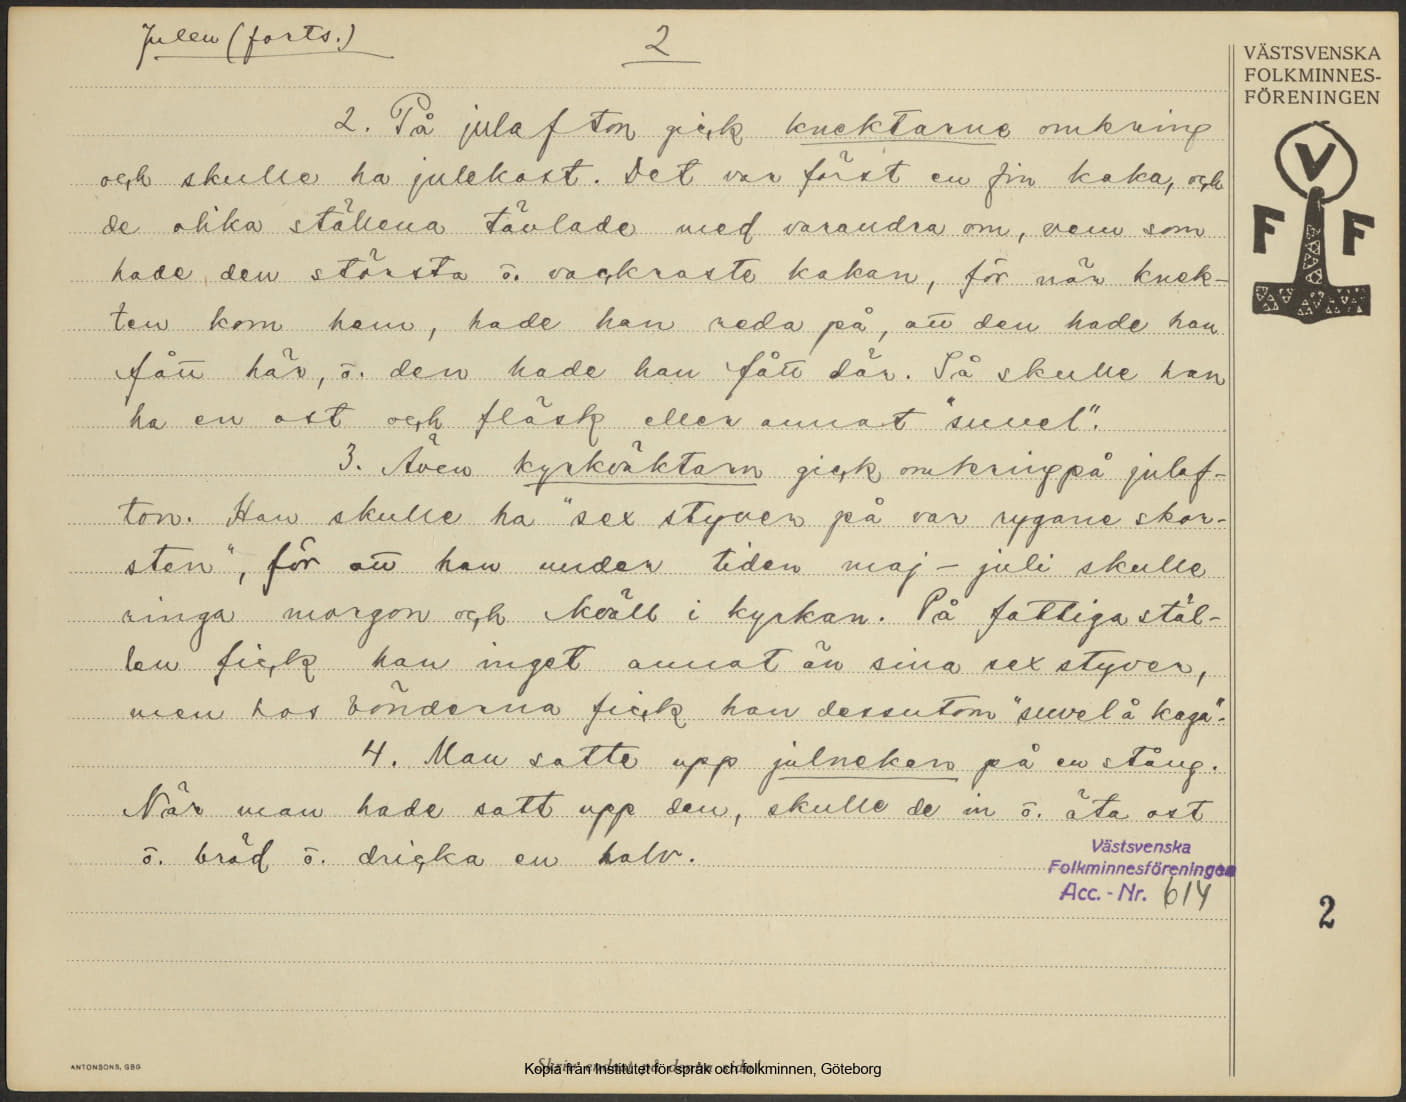 Julen (forts.)
2
VÄSTSVENSKA
FOLKMINNES-
FÖRENINGEN
V
F F
2. På julafton gick knektarne omkring
och skulle ha julekost. Det var först en fin kaka, och
de olika ställena tävlade med varandra om, vem som
hade den största o. vackraste kakan, för när knek-
ten kom hem, hade han reda på, att den hade han
fått här, o. den hade han fått där. Så skulle han
ha en ost och fläsk eller annat "suvel".
3. Även kyrkväktarn gick omkring på julaf-
ton. Han skulle ha "sex styver på var rygane skor-
sten", för att han under tiden maj – juli skulle
ringa morgon och kväll i kyrkan. På fattiga stäl-
len fick han inget annat än sina sex styver,
men hos bönderna fick han dessutom "suvel å kaga".
4. Man satte upp julneken på en stång.
När man hade satt upp den, skulle de in o. äta ost
o. bröd o. dricka en halv.
Västsvenska
Folkminnesföreningen
Acc. - Nr. 614
2
ANTONSONS, GBG
Kopia från Institutet för språk och folkminnen, Göteborg